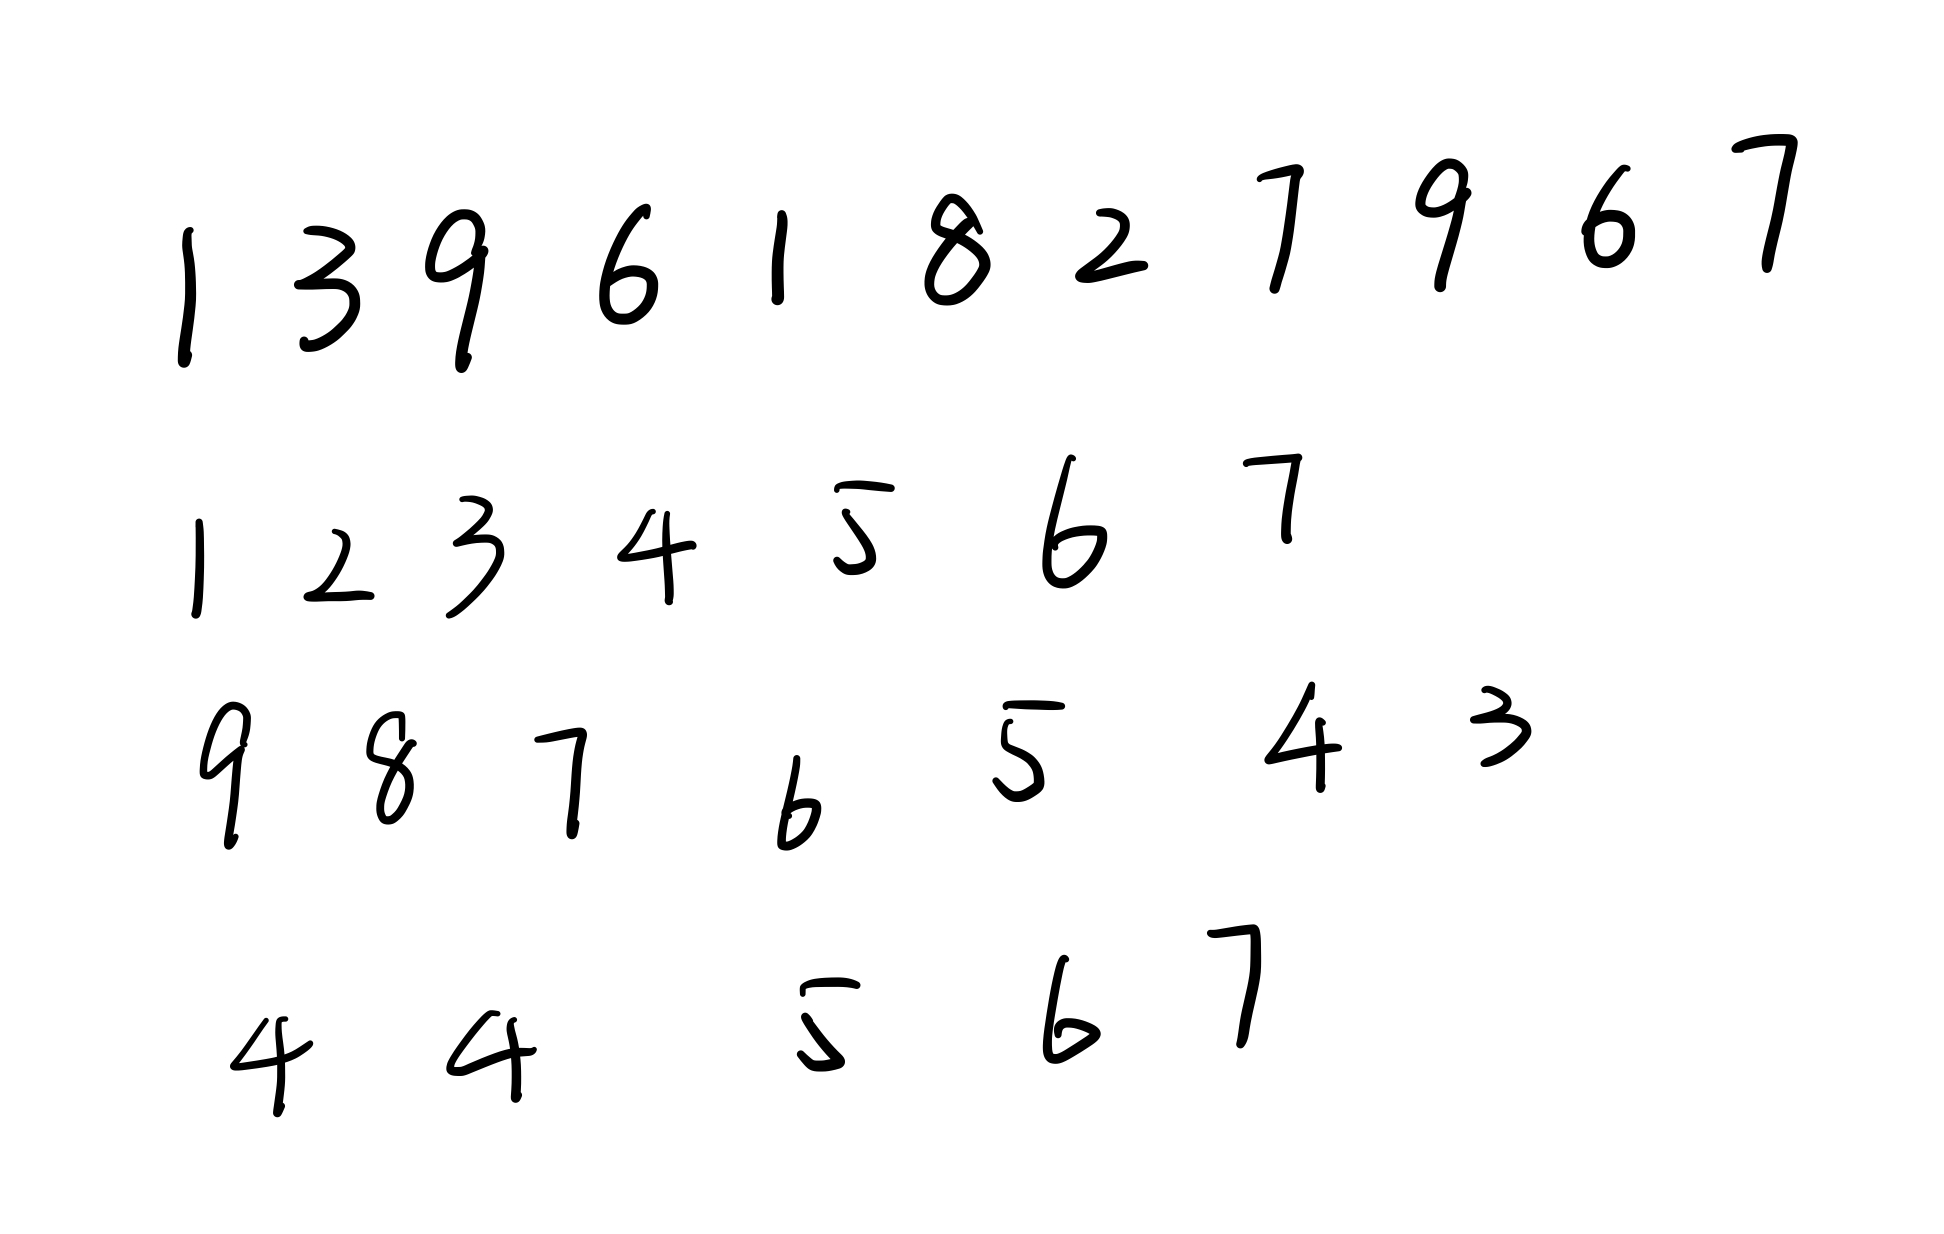 1 3 9 6 1 8 2 7 9 6 7
1 2 3 4 5 6 7
9 8 7 6 5 4 3
4 4 5 6 7